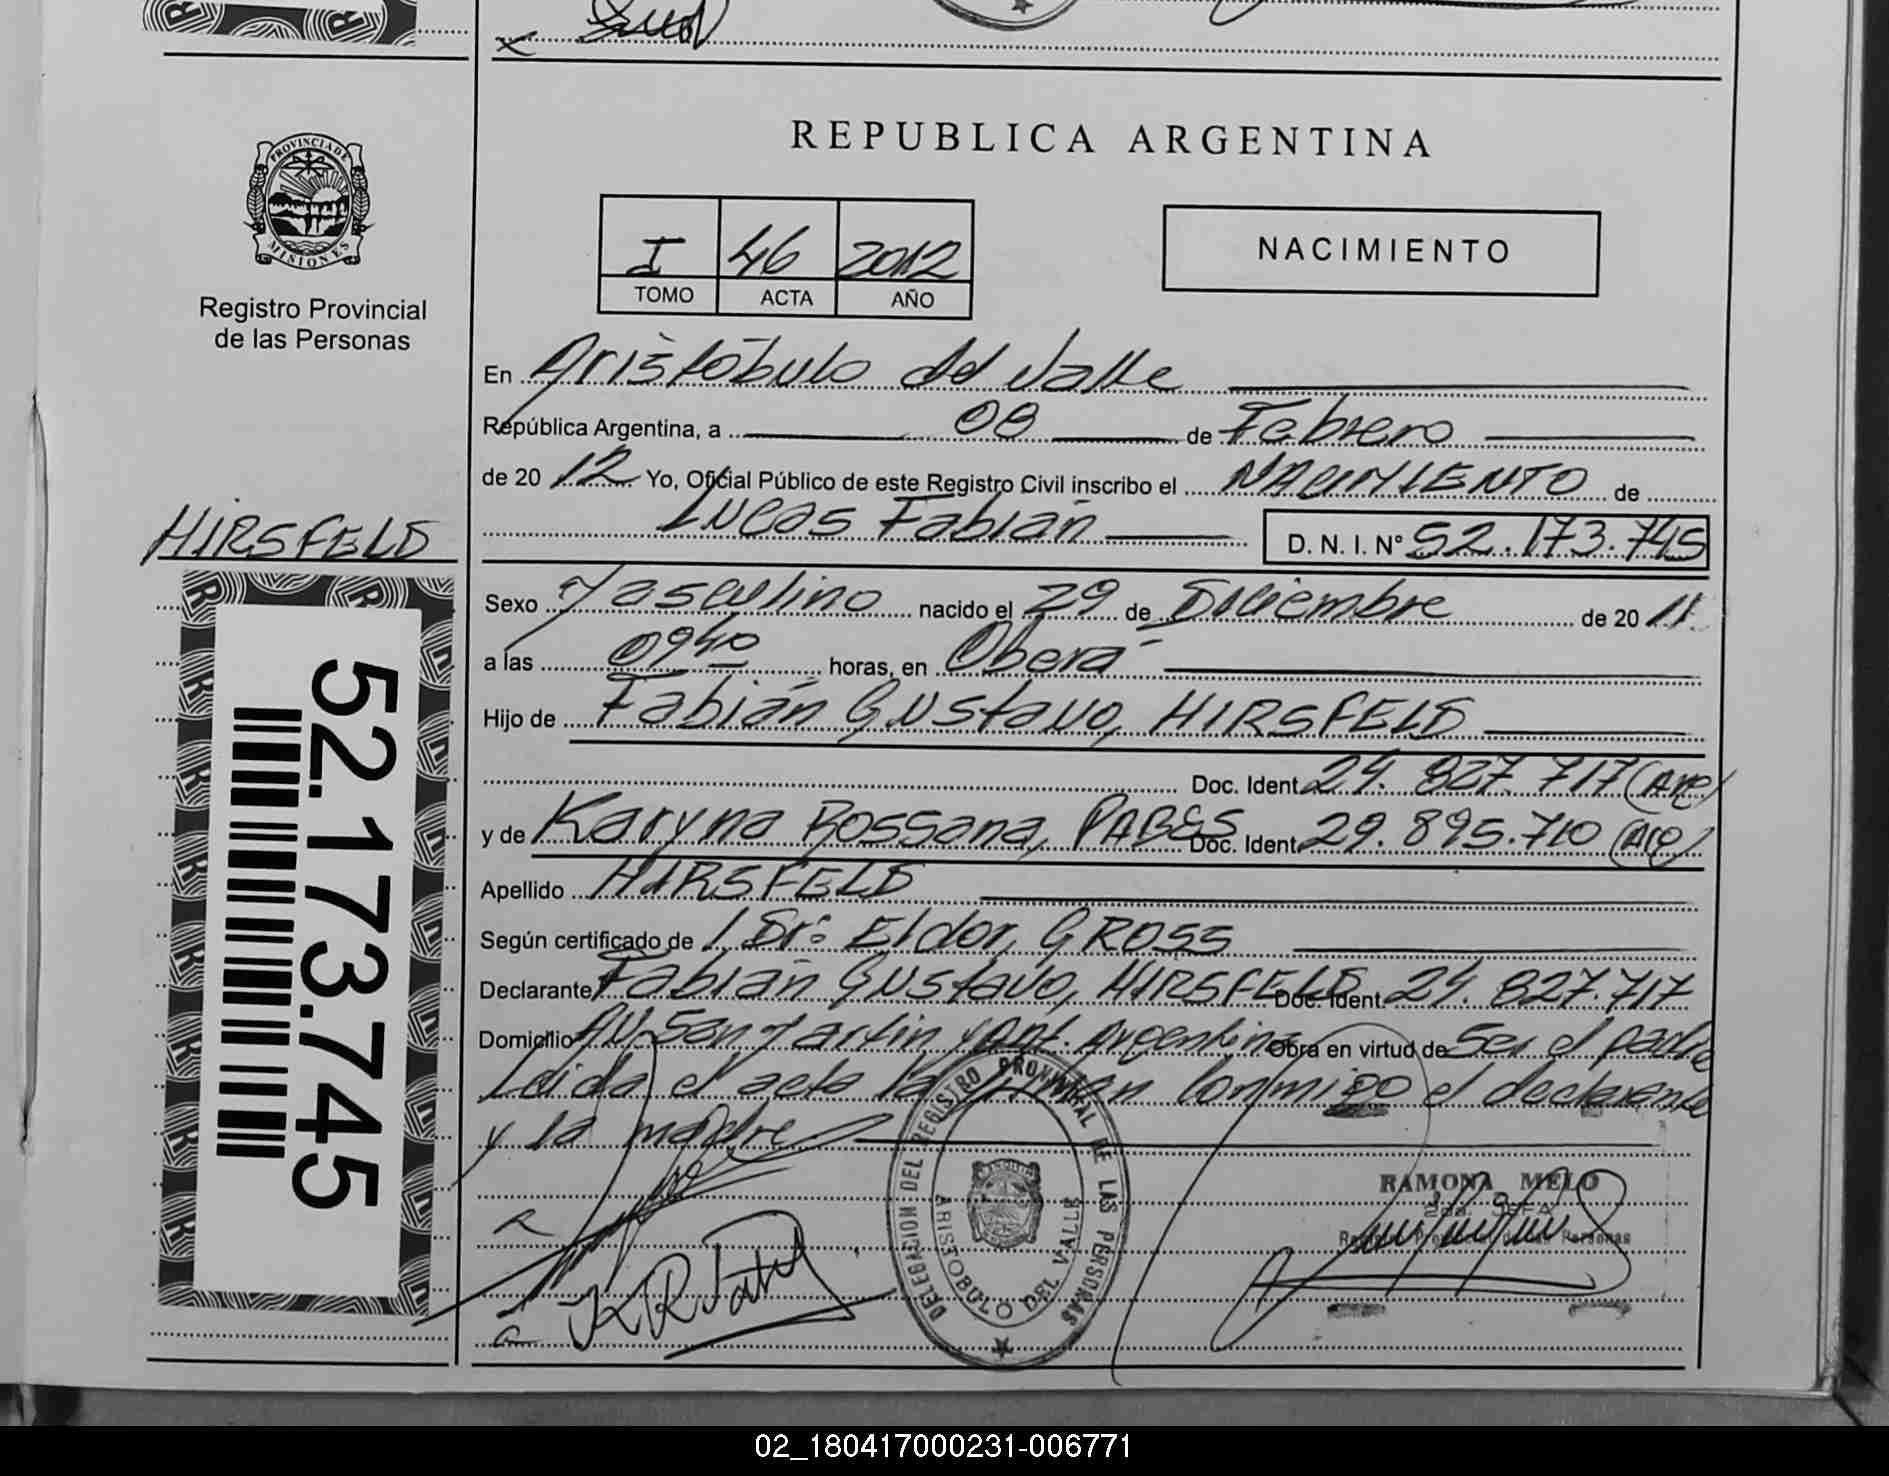 REPUBLICA ARGENTINA
PROVINCIA DE
MISIONES
Registro Provincial
de las Personas
I 46 2012
TOMO ACTA AÑO
NACIMIENTO
En Aristóbulo del Valle
República Argentina, a 08 de Febrero
de 20 12 Yo, Oficial Público de este Registro Civil inscribo el NACIMIENTO de
Lucas Fabián D. N. I. N° 52.173.745
HIRSFELD
Sexo Masculino nacido el 29 de Diciembre de 20 11
a las 09 40 horas, en Oberá
Hijo de Fabián Gustavo, HIRSFELD
Doc. Ident. 24.827.717 (Arg)
y de Karyna Rossana, PABES Doc. Ident. 29.895.710 (Arg)
Apellido HIRSFELD
Según certificado de 1 Dr: Eldor, GROSS
Declarante Fabián Gustavo, HIRSFELD Doc. Ident. 24.827.717
Domicilio AV. San Martín y Ant. Argentina Obra en virtud de Ser el padre
Leída el acta la firman conmigo el declarante
y la madre
52.173.745
DELEGACION DEL REGISTRO PROVINCIAL DE LAS PERSONAS
ARISTOBULO DEL VALLE
RAMONA MELO
JEFA
Registro Provincial de las Personas
02_180417000231-006771